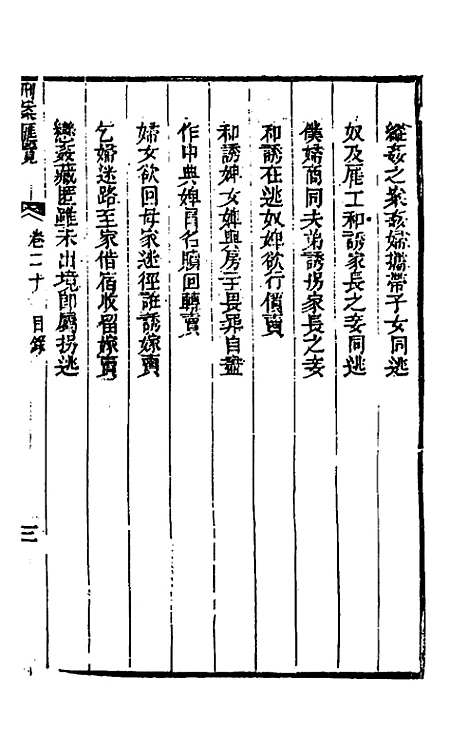 縱姦之案姦婦攜帶子女同逃
奴及雇工和誘家長之妾同逃
僕婦商同夫弟誘拐家長之妾
和誘在逃奴婢欲行價賣
和誘婢女婢與房主畏罪自盡
作中典婢冒名贖回轉賣
婦女欲回母家逃徑誑誘嫁賣
乞婦迷路至家借宿收留嫁賣
戀姦藏匿雖未出境卽屬拐逃
刑案匯覽
卷二十 目錄
三